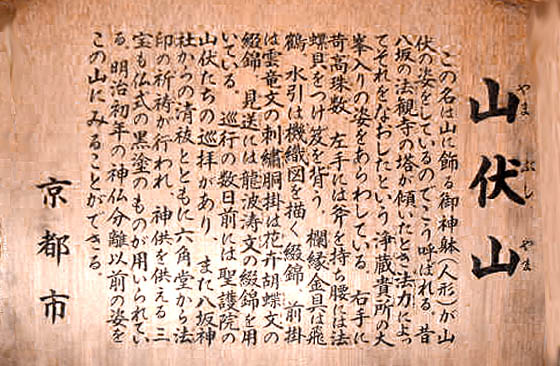 山伏山
やま ぶし やま
この名は山に飾る御神躰(人形)が山
伏の姿をしているのでこう呼ばれる。昔
八坂の法観寺の塔が傾いたとき法力によっ
てそれをなおしたという浄蔵貴所の大
峯入りの姿をあらわしている。右手に
苛高珠数、左手には斧を持ち腰には法
螺貝をつけ笈を背う。欄縁金具は飛
鶴、水引は機織図を描く綴錦、前掛
は雲竜文の刺繡胴掛は花卉胡蝶文の
綴錦、見送には龍波濤文の綴錦を用
いている。巡行の数日前には聖護院の
山伏たちの巡拝があり、また八坂神
社からの清祓とともに六角堂から法
印の祈祷が行われ、神供を供える三
宝も仏式の黒塗のものが用いられてい
る。明治初年の神仏分離以前の姿を
この山にみることができる。
京都市